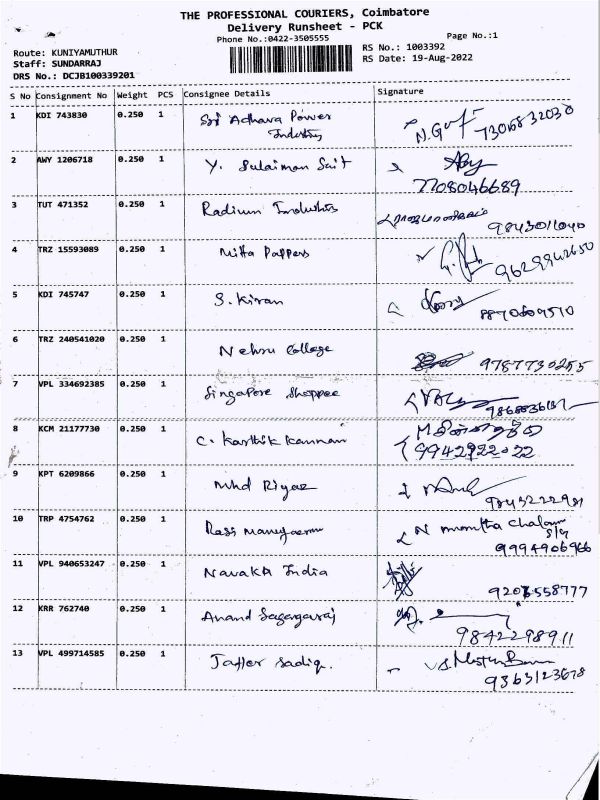 THE PROFESSIONAL COURIERS, Coimbatore
Delivery Runsheet - PCK
Phone No.:0422-3505555
Page No.:1
Route: KUNIYAMUTHUR
RS No.: 1003392
Staff: SUNDARRAJ
RS Date: 19-Aug-2022
DRS No.: DCJB100339201
S No Consignment No Weight PCS Consignee Details Signature
1 KDI 743830 0.250 1 Sri Adhava Power
Industry
2 AWY 1206718 0.250 1 Y. Sulaiman Sait
7708046689
3 TUT 471352 0.250 1 Radium Industries
9843011040
4 TRZ 15593089 0.250 1 Mitta Pappers
9629942650
5 KDI 745747 0.250 1 S. Kiran
8870609510
6 TRZ 240541020 0.250 1 Nehru College
9787730255
7 VPL 334692385 0.250 1 Singapore Shoppee
8 KCM 21177730 0.250 1 C. Karthik Kannan
9942922022
9 KPT 6209866 0.250 1 Mhd Riyaz
9843222981
10 TRP 4754762 0.250 1
9994906966
11 VPL 940653247 0.250 1 Navaka India
12 KRR 762740 0.250 1 Anand
9842298911
13 VPL 499714585 0.250 1 Jaffer Sadiq.
9363123678